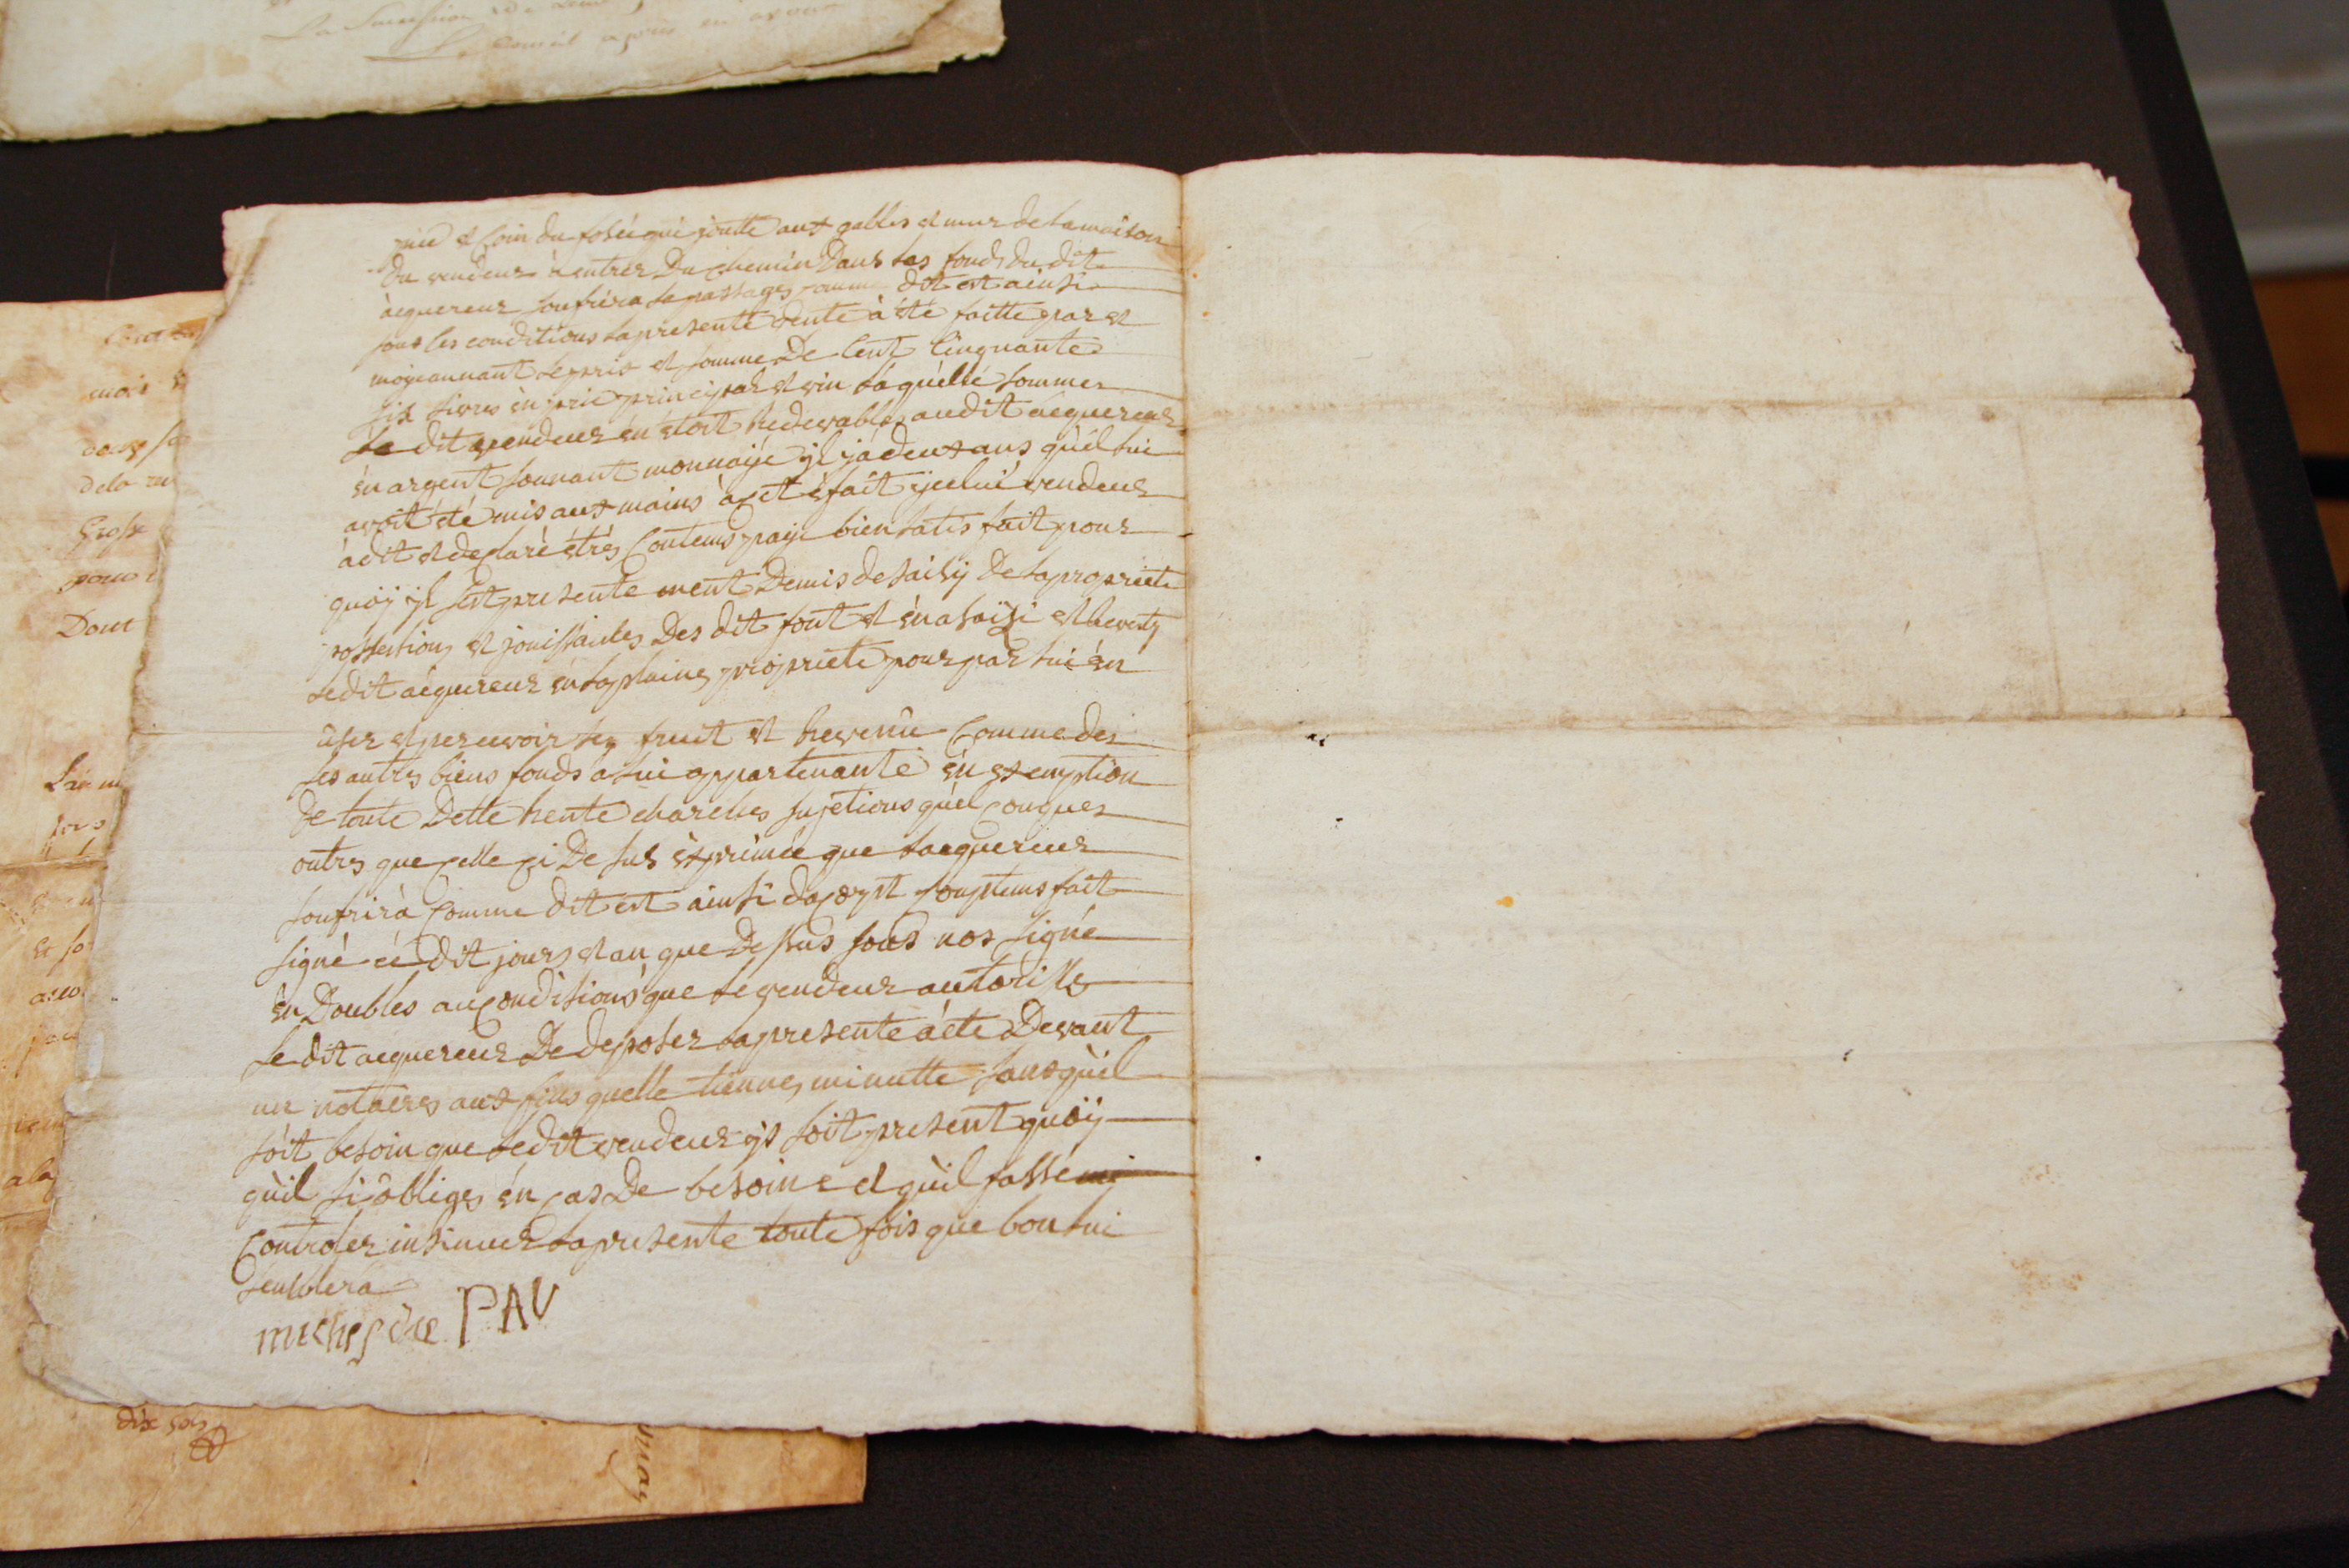 La Succession de
Le Conseil apres en avoir
et Coin du fossé qui joute aux gables et mur de la maison
du vendeur à entrer Du chemin Dans les fonds du dit
acquereur soufrira le passages comme dit est ainsi
sous les conditions la presente vente à été faitte par et
moyeannant le prix et somme De Cent Cinquante
six livres en prix principal et vin laquelle somme
Le dit vendeur en étoit Redevable audit acquereur
en argent sonnant monnoije yl ja deux ans qu'il lui
avoit été mis aux mains à cet éfait ycelui vendeur
à dit et declaré étres Contems paye bien satis fait pour
quoÿ yl sest presente ment Demis desaisÿ De la propriete
possession et jouissantes Des dit font et en a saisi et Revesty
ledit acquereur en la plaine propriete pour par lui en
user et percevoir les fruit et Revenu Comme des
les autres biens fonds a lui appartenante en exemption
De toute Dette Rente charches sujetions quel conques
outre que celle ci De sus exprimée que lacquereur
soufrira Comme dit est ainsi dacort fait
signé cé dit jours et an que Dessus sous nos signé
en Doubles au conditions que le vendeur autorisse
Le dit acquereur De deposer la presente acte Devant
un notaires aux fins quelle tienne minutte sans qu'il
soit besoin que ledit vendeur ys soit present quoÿ
qu'il si obliges en cas De besoins et qu'il fasse
Controler insinuer la presente toute fois que bon lui
semblera
PAV
mois
dela
Grosse
pour
Dont
Et so
a la
dix sols